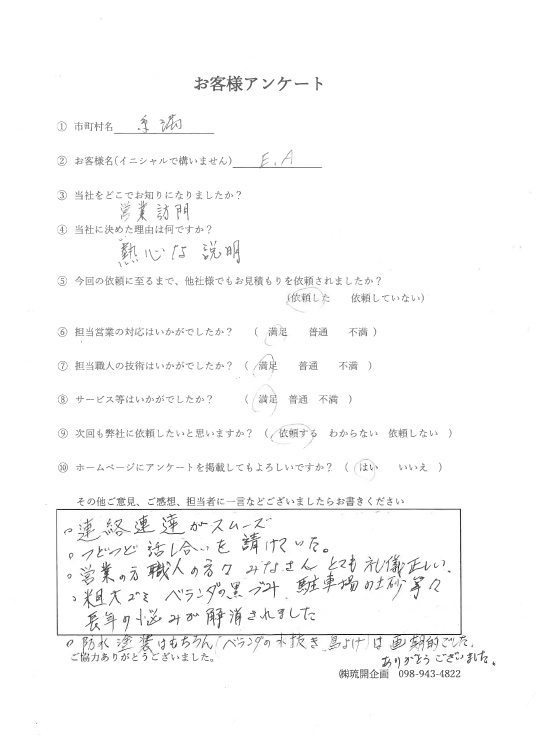 お客様アンケート
① 市町村名 糸満
② お客様名(イニシャルで構いません) E.A
③ 当社をどこでお知りになりましたか?
営業訪問
④ 当社に決めた理由は何ですか?
熱心な説明
⑤ 今回の依頼に至るまで、他社様でもお見積もりを依頼されましたか?
(依頼した 依頼していない)
⑥ 担当営業の対応はいかがでしたか? ( 満足 普通 不満 )
⑦ 担当職人の技術はいかがでしたか? ( 満足 普通 不満 )
⑧ サービス等はいかがでしたか? ( 満足 普通 不満 )
⑨ 次回も弊社に依頼したいと思いますか? ( 依頼する わからない 依頼しない )
⑩ ホームページにアンケートを掲載してもよろしいですか? ( はい いいえ )
その他ご意見、ご感想、担当者に一言などございましたらお書きください
。連絡連達がスムーズ
。つどつど話し合いを請けていた。
。営業の方職人の方々みなさんとても礼儀正しい、
、粗大ゴミ ベランダの黒ズミ 駐車場の土砂等々
長年の悩みが解消されました
。防水塗装はもちろん(ベランダの水抜き 鳥よけ)は画期的でした。
ご協力ありがとうございました。
ありがとうございました。
㈱琉開企画 098-943-4822